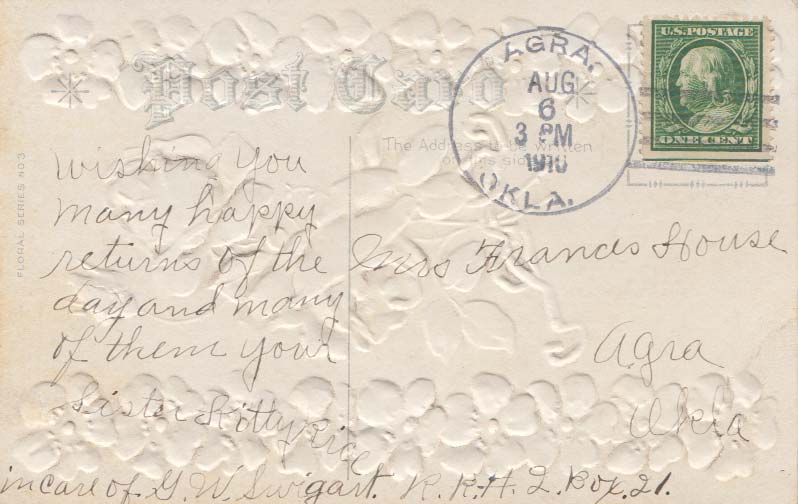 Post Card
AGRA.
AUG
6
3 PM
1910
OKLA.
U.S. POSTAGE
ONE CENT
The Address to be written
on this side
FLORAL SERIES NO 3
Wishing you
many happy
returns of the
day and many
of them your
Sister Kitty Rice
in care of G. W. Swigart. R. R. # 2. Box. 21.
Mrs Francis House
Agra
Okla